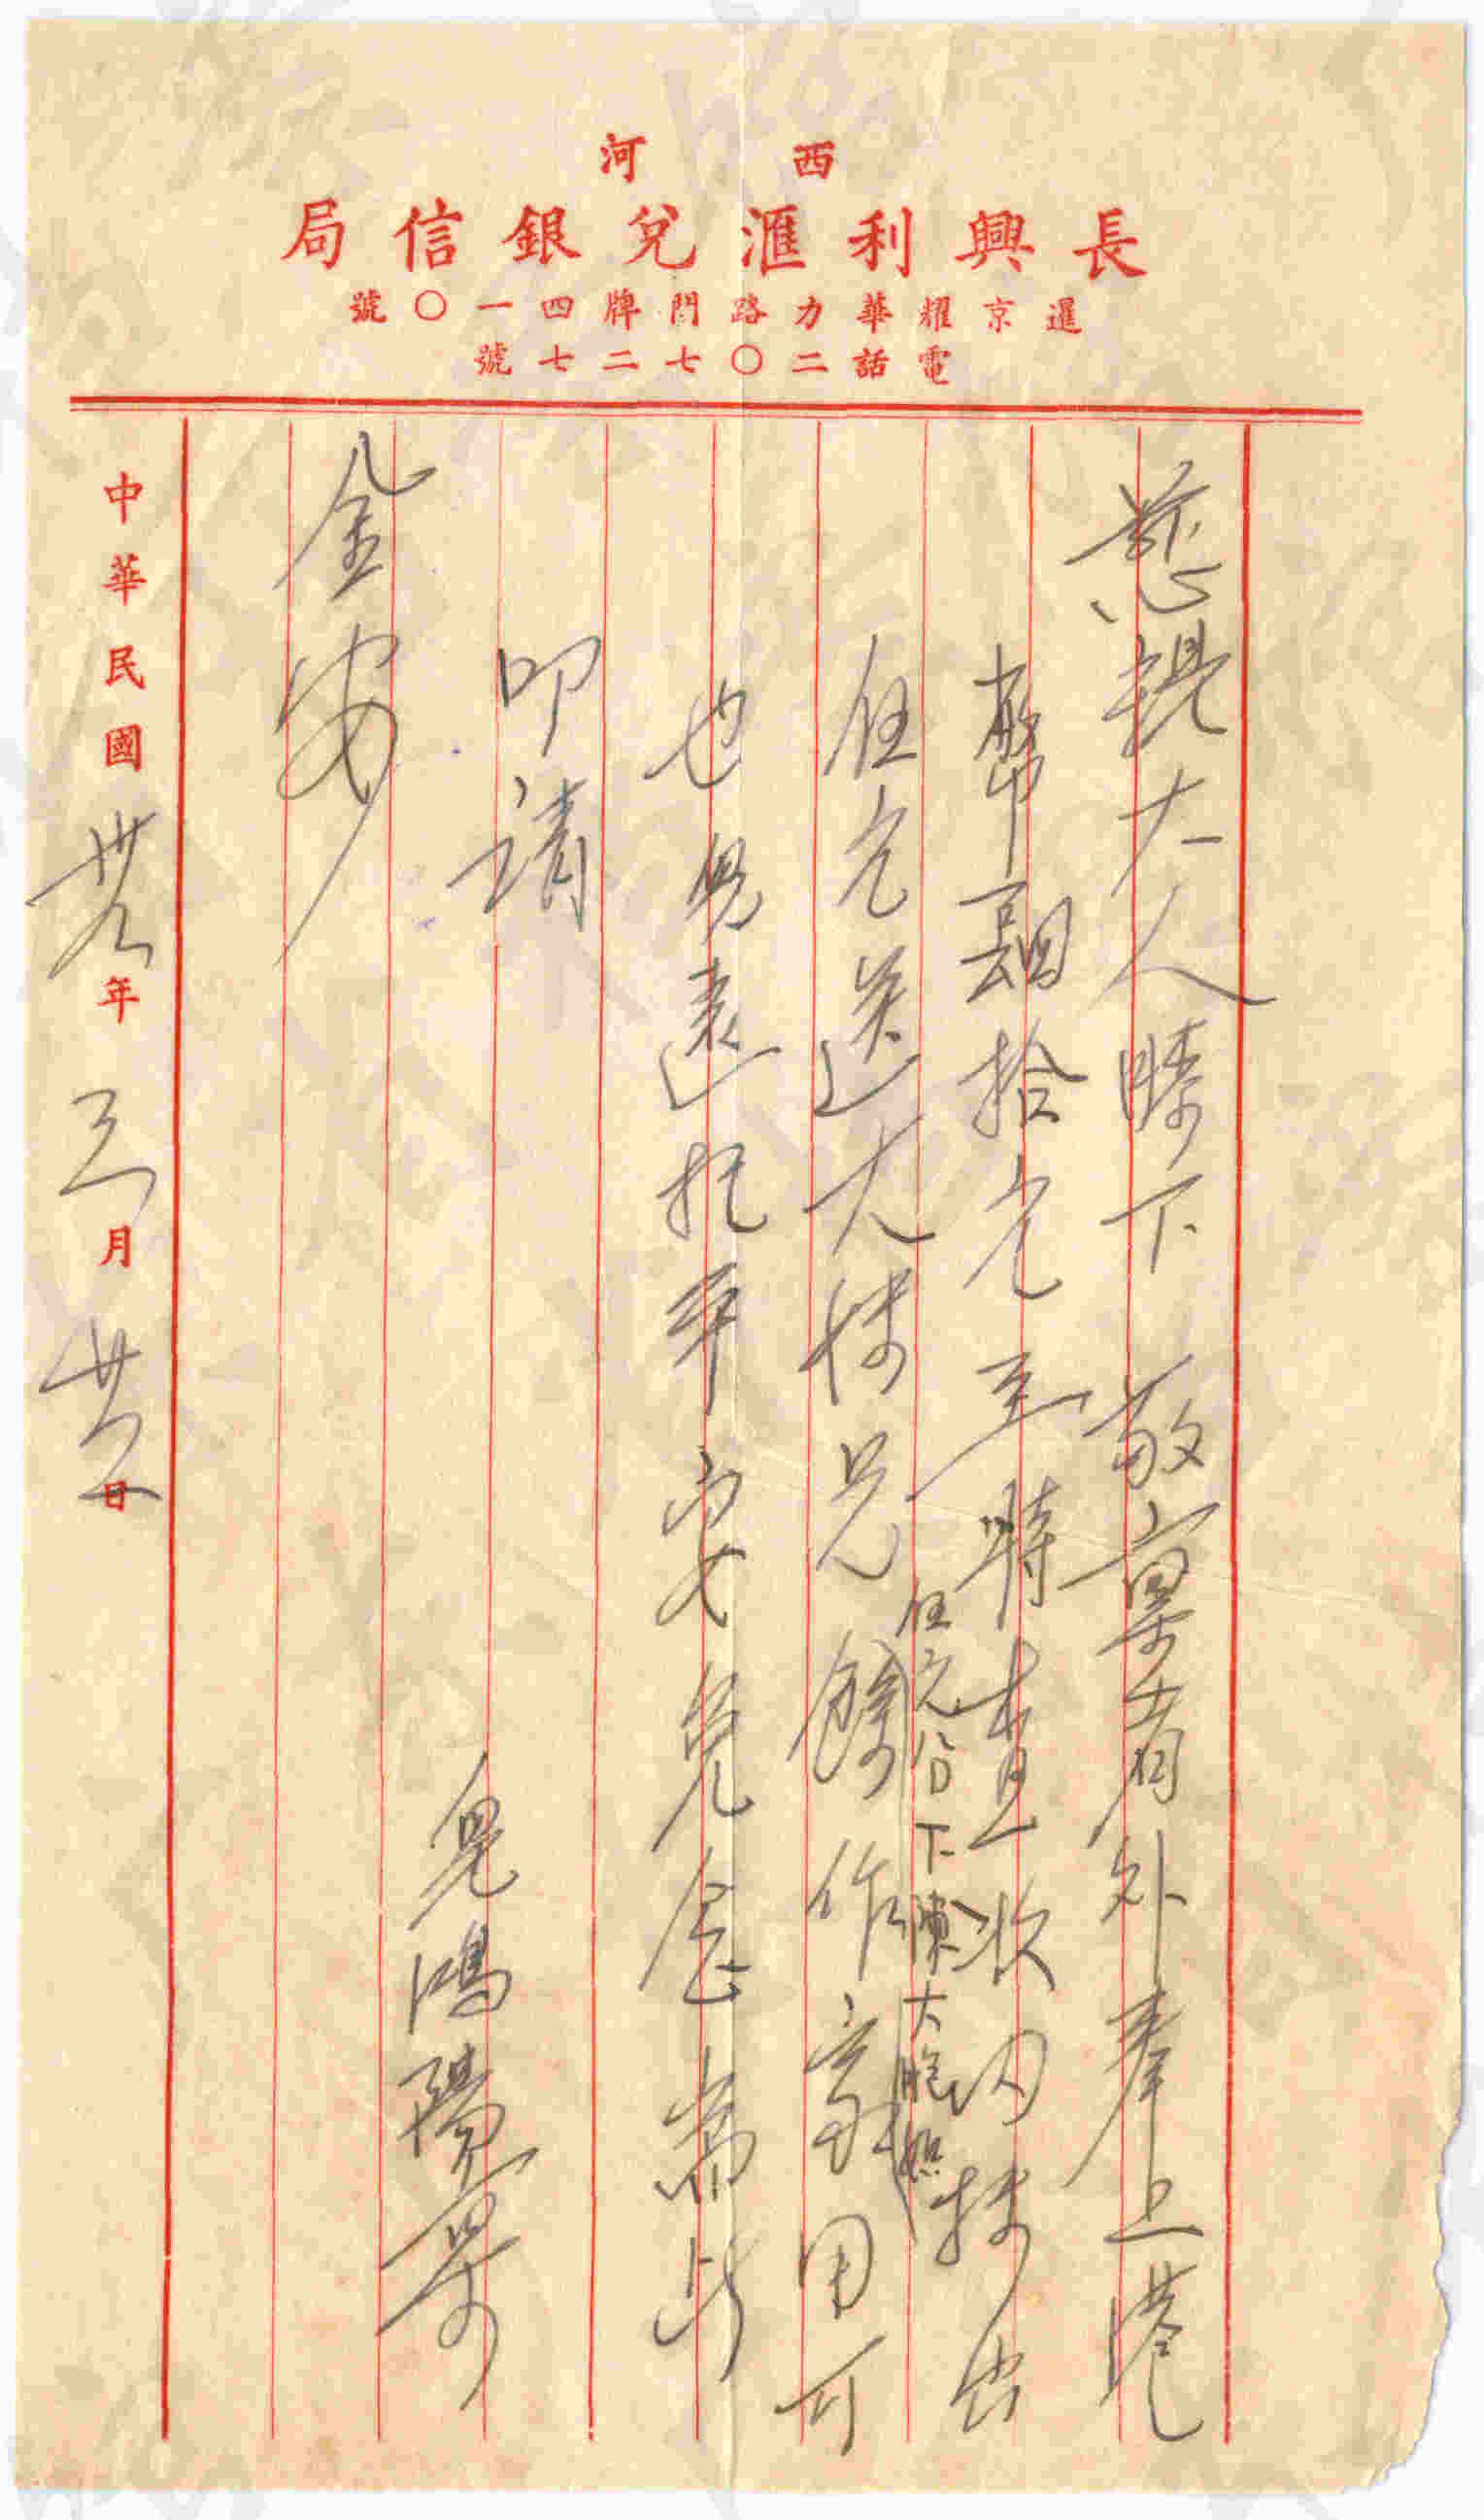 西河
長興利滙兌銀信局
暹京耀華力路門牌四一〇號
電話二〇七二七號
慈親大人膝下 敬稟者外奉上港
幣肆拾元至時查收內抹出
伍元送大妹兄餘作家用可
伍元公下陳大胞姐
也兒遠托平安免念耑此
叩請
金安
兒鴻陽稟
中華民國卅九年三月廿六日